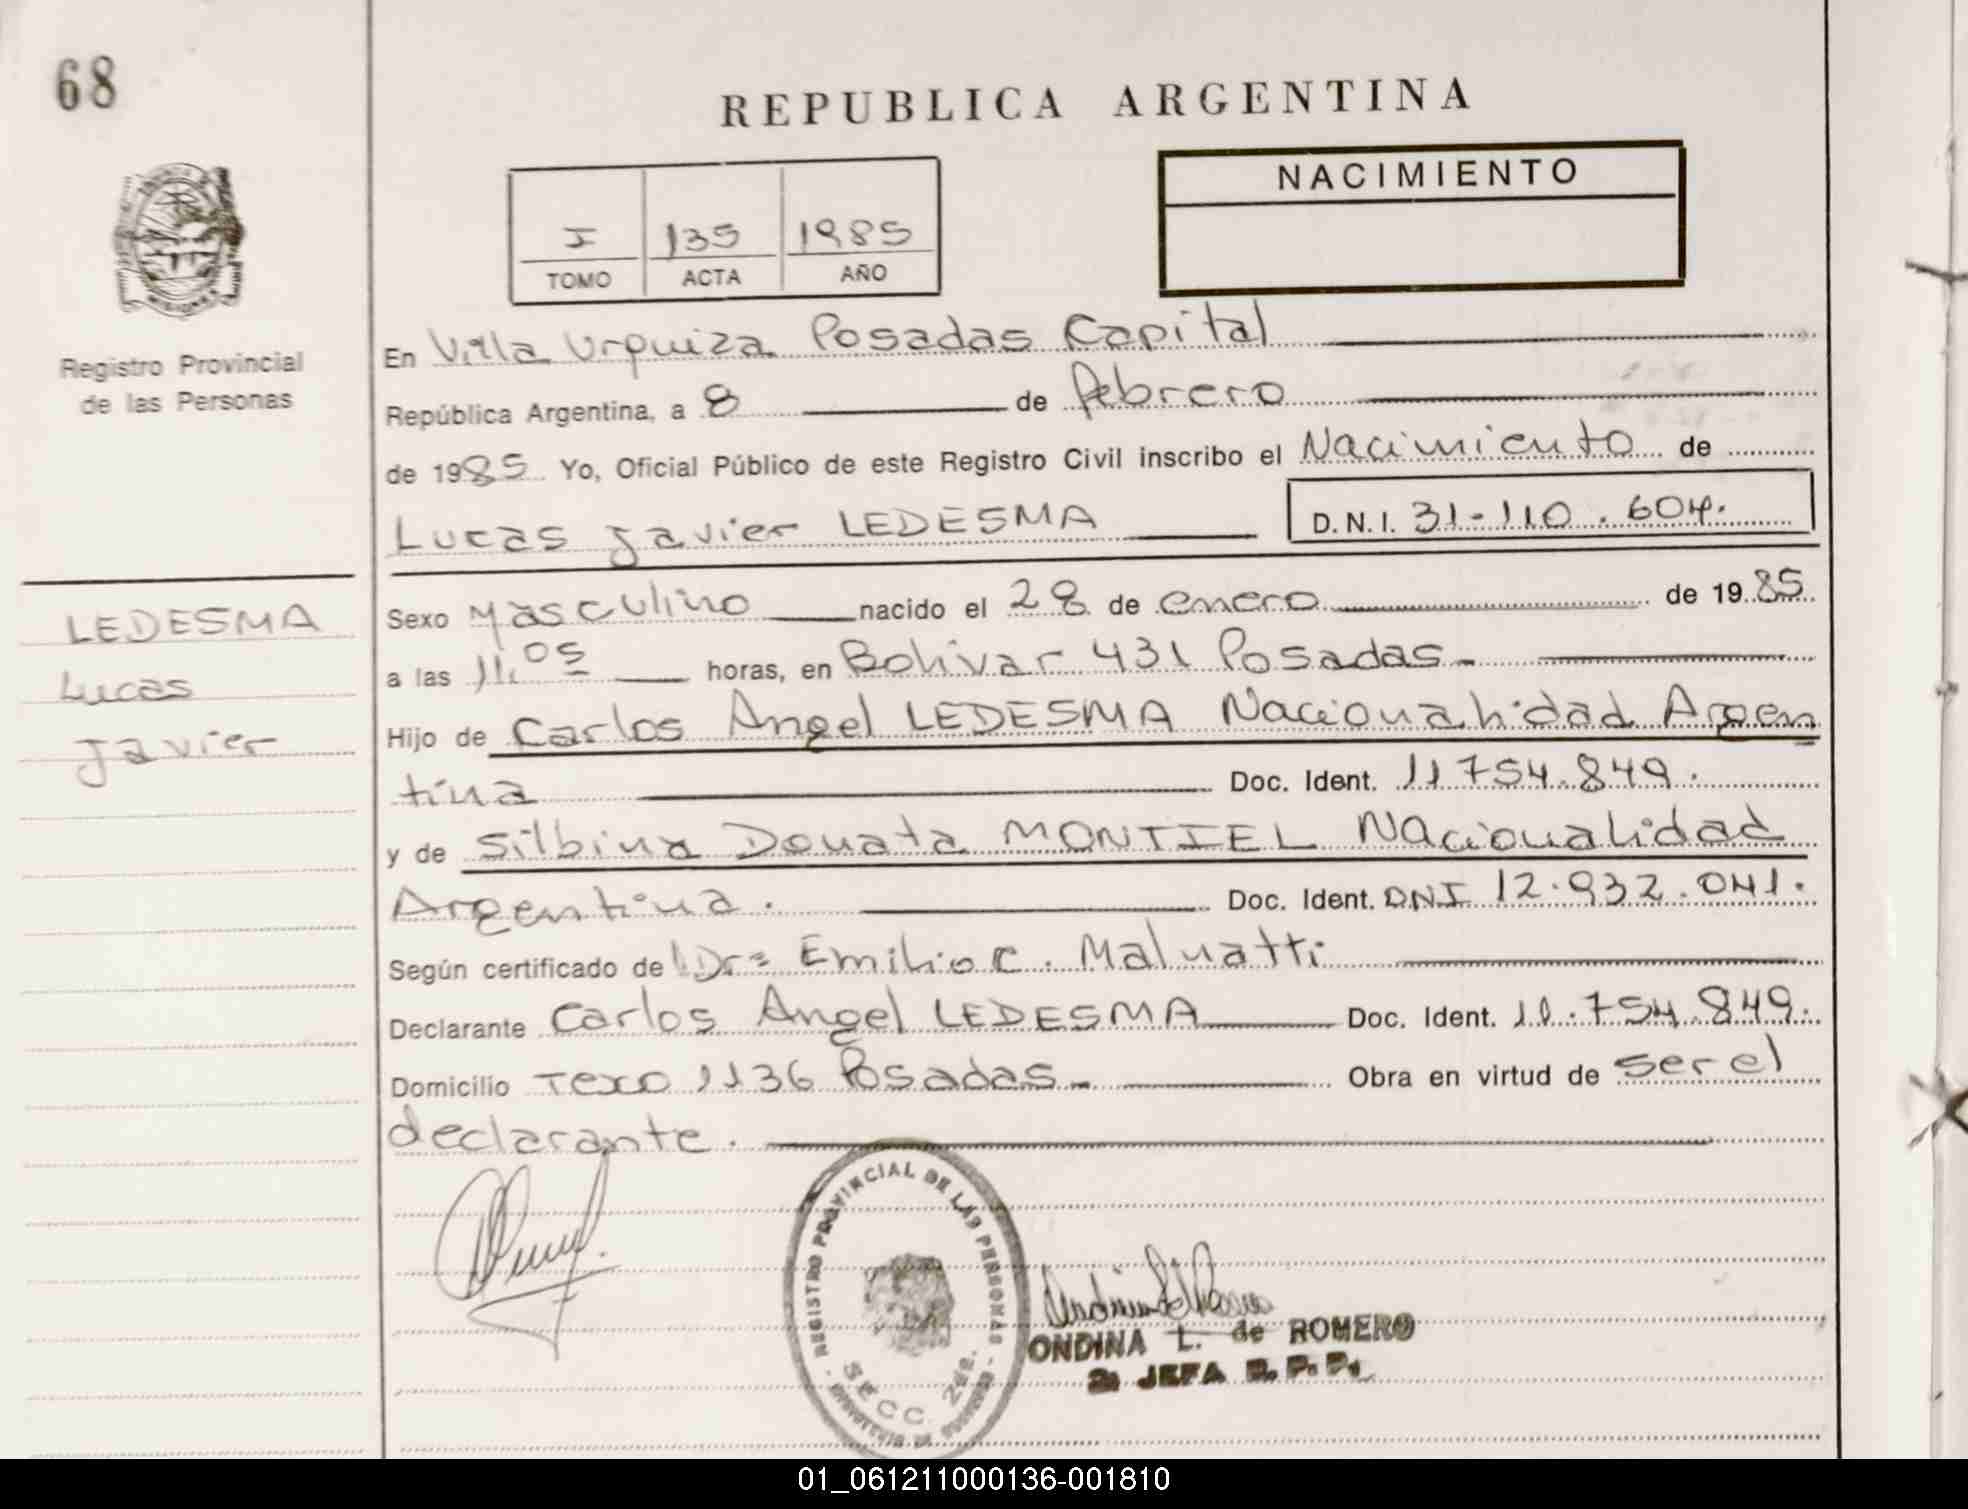 68
REPUBLICA ARGENTINA
NACIMIENTO
I 135 1985
TOMO ACTA AÑO
Registro Provincial
de las Personas
En Villa Urquiza Posadas Capital
República Argentina, a 8 de febrero
de 1985 Yo, Oficial Público de este Registro Civil inscribo el Nacimiento de
Lucas Javier LEDESMA D.N.I. 31-110.604.
LEDESMA
Lucas
Javier
Sexo Masculino nacido el 28 de enero de 1985
a las 11.05 horas, en Bolivar 431 Posadas-
Hijo de Carlos Angel LEDESMA Nacionalidad Argen
tina Doc. Ident. 11754.849.
y de Silbina Donata MONTIEL Nacionalidad
Argentina. Doc. Ident. DNI 12.932.041.
Según certificado de Dr= Emilio C. Maluatti
Declarante Carlos Angel LEDESMA Doc. Ident. 11.754.849.
Domicilio Texo 1136 Posadas- Obra en virtud de ser el
declarante.
REGISTRO PROVINCIAL DE LAS PERSONAS
SECC. 2da.
ONDINA L. de ROMERO
2a JEFA R.P.P.
01_061211000136-001810